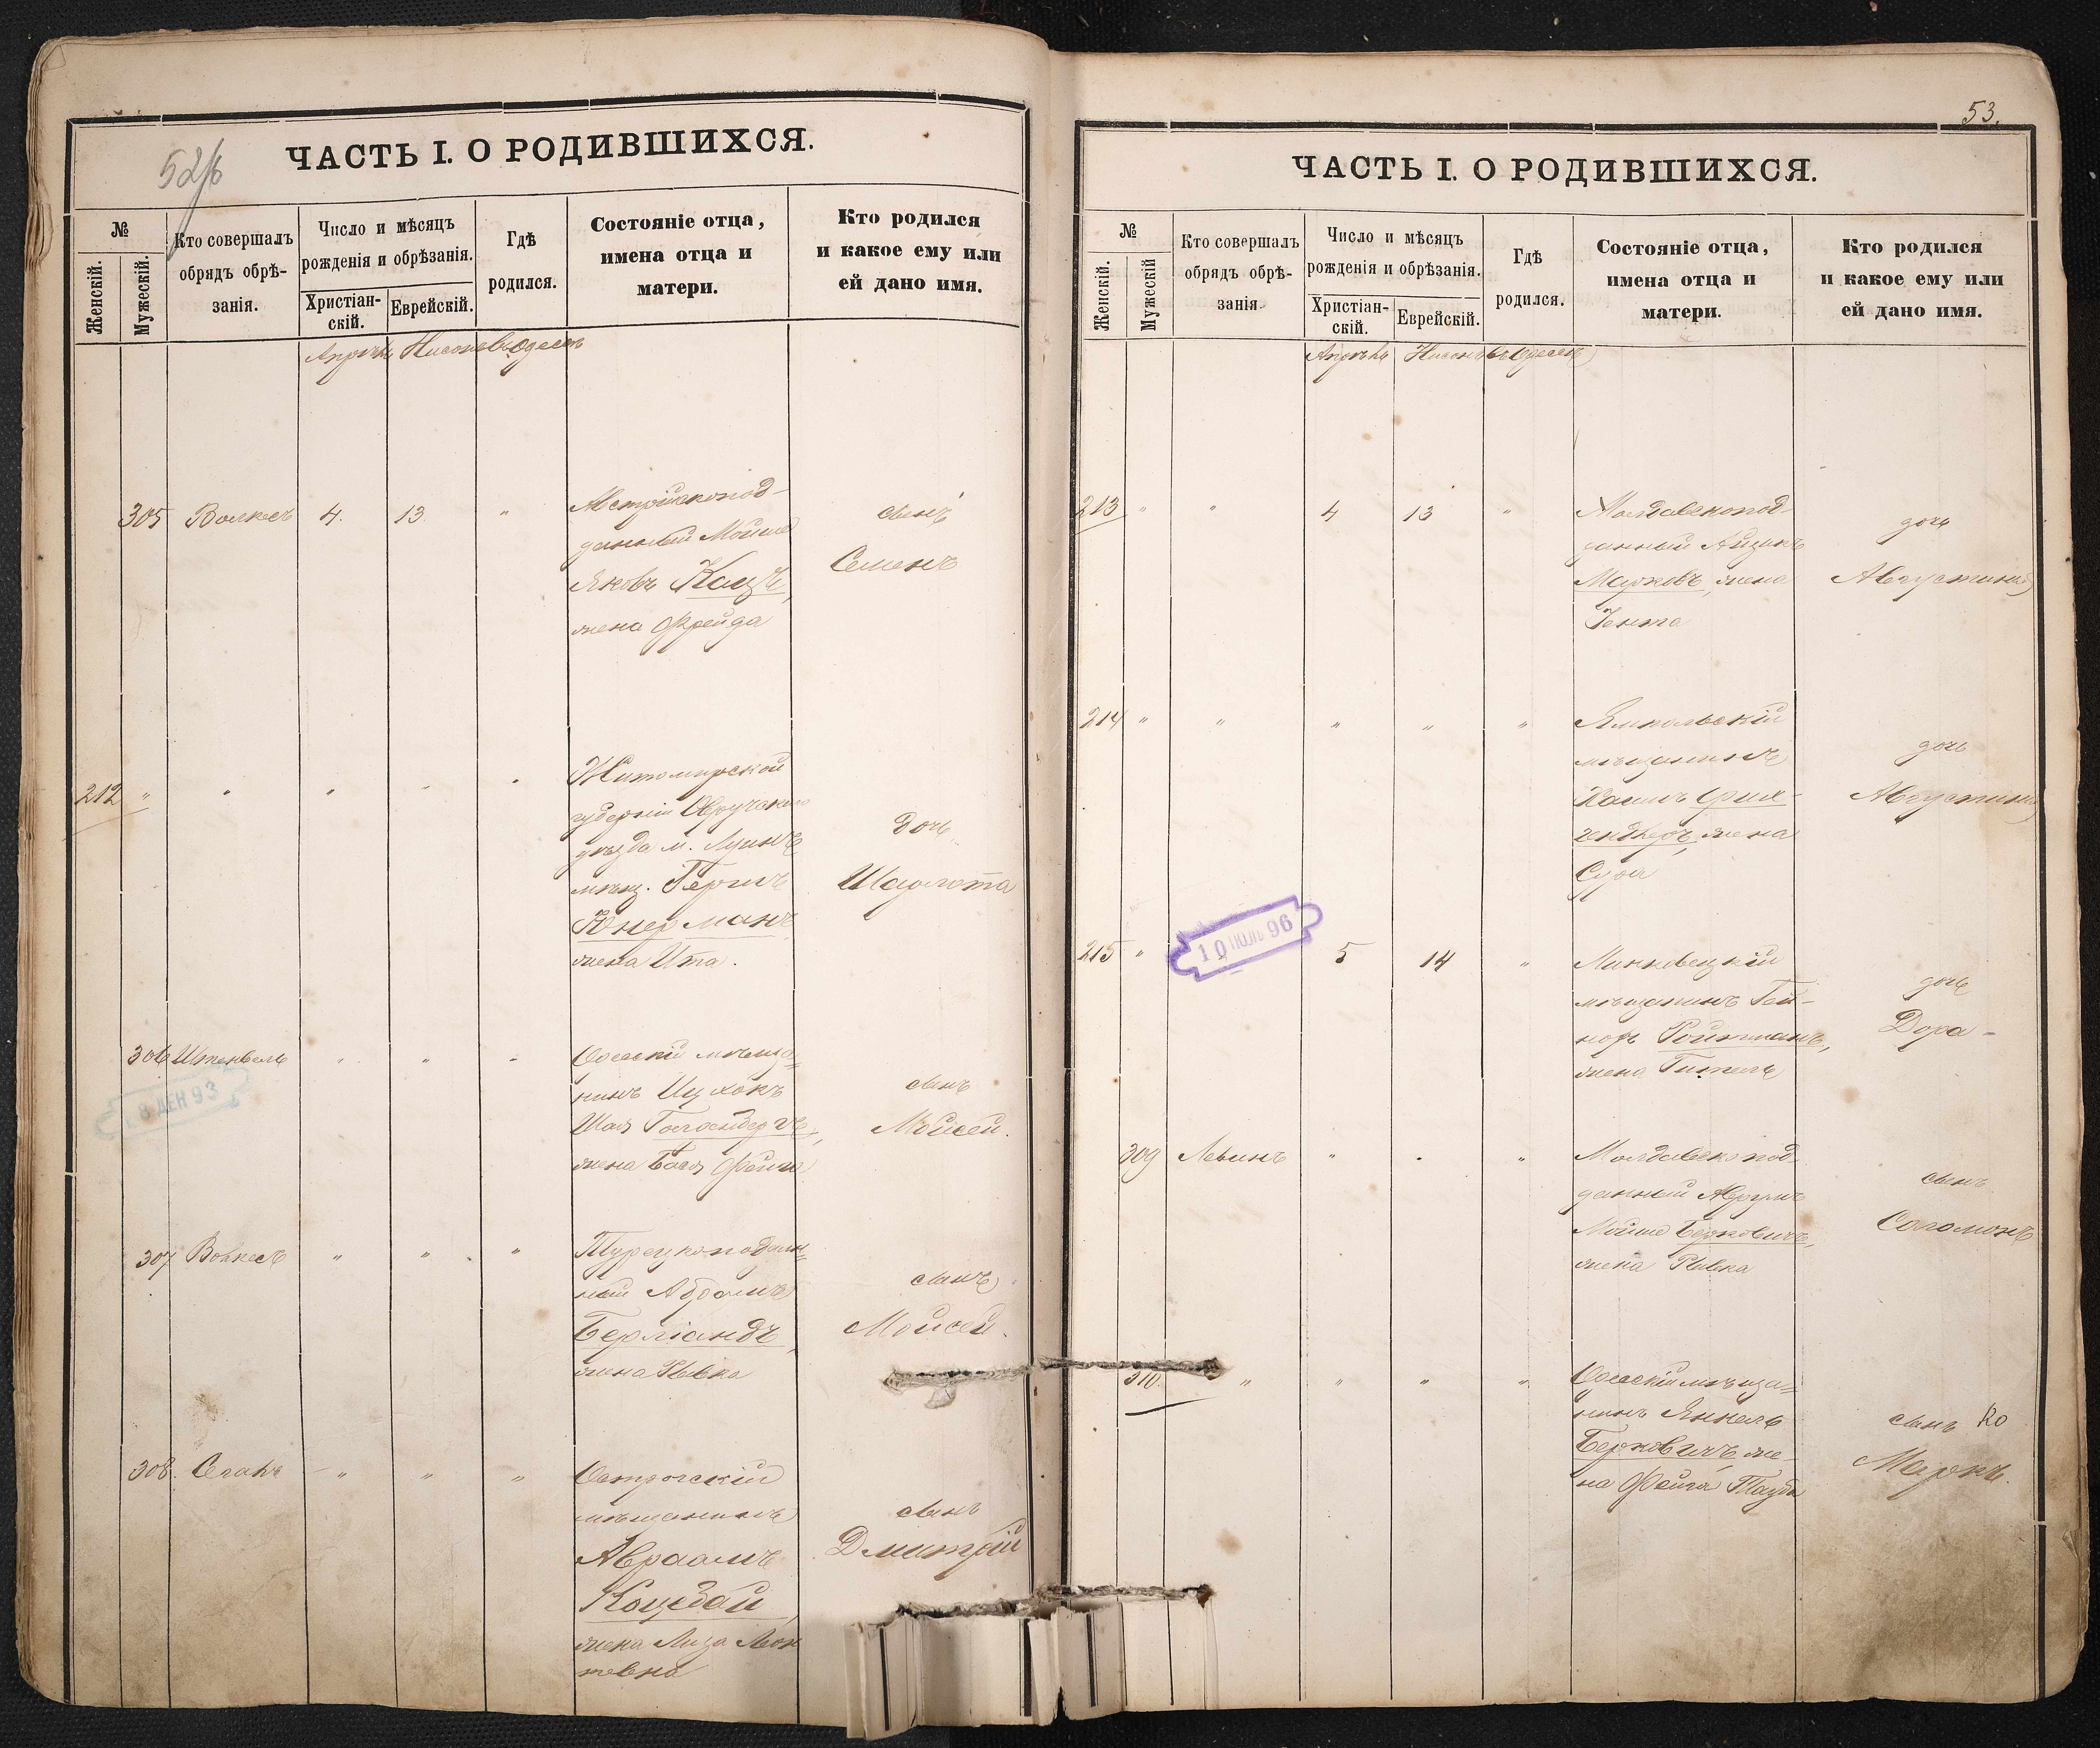 52/б
ЧАСТЬ I. О РОДИВШИХСЯ.
№
Женскій.
Мужескій.
Кто совершалъ
обрядъ обрѣ-
занія.
Число и мѣсяцъ
рожденія и обрѣзанія.
Христіан-
скій.
Еврейскій.
Гдѣ
родился.
Состояніе отца,
имена отца и
матери.
Кто родился
и какое ему или
ей дано имя.
Апрѣль Нисонъ въ Одессѣ
305 Волкесъ 4. 13. "
Австрійскопод-
данный Мойше
Яковъ Кацъ,
жена Фрейда
сынъ
Семенъ
212 " " " " "
Житомирской
губерніи Овручскаго
уѣзда м.
мѣщ. Гершъ
Юнерманъ
жена Ита.
дочь
Шарлота
306 " " "
Одесскій мѣща=
нинъ Ицхокъ
Шая Гольденбергъ,
жена Бася Фейга
сынъ
Мойсей.
8 ДЕН 93
307 Волкесъ " " "
Турецкоподдан=
ный Абрамъ
Берліандъ,
жена Ривка
сынъ
Мойсей.
308. Сегалъ " " "
Острогскій
мѣщанинъ
Авраамъ
жена Лиза Леон
тевна
сынъ
Дмитрій
53.
ЧАСТЬ I. О РОДИВШИХСЯ.
№
Женскій.
Мужескій
Кто совершалъ
обрядъ обрѣ-
занія.
Число и мѣсяцъ
рожденія и обрѣзанія.
Христіан-
скій.
Еврейскій.
Гдѣ
родился.
Состояніе отца,
имена отца и
матери.
Кто родился
и какое ему или
ей дано имя.
Апрѣль Нисонъ въ Одессѣ
213 " " 4 13 "
Молдавскопод-
данный Айзикъ
Марковъ, жена
Гента
дочь
Августина
214 " " " " "
Ямпольскій
мѣщанинъ
Хаимъ Фих-
тенгольцъ, жена
Сура
дочь
Августина
10 ІЮЛЬ 96
215 " 5 14 "
мѣщанинъ Гей-
нохъ Ройтманъ,
жена Гитель
дочь
Дора -
309 Левинъ " " "
Молдавскопод-
данный Аврумъ
Мойше Берковичъ,
жена Ривка
сынъ
Соломонъ
310. " " " "
Одесскій мѣща=
нинъ Янкель
Берковичъ же-
на Фейга Тауба
сынъ
Маркъ.